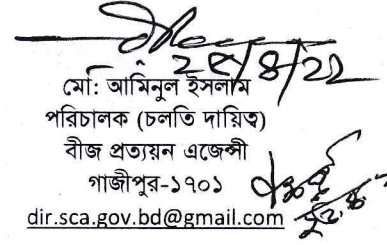 ২৫/৪/২২
মো: আমিনুল ইসলাম
পরিচালক (চলতি দায়িত্ব)
বীজ প্রত্যয়ন এজেন্সী
গাজীপুর-১৭০১
dir.sca.gov.bd@gmail.com